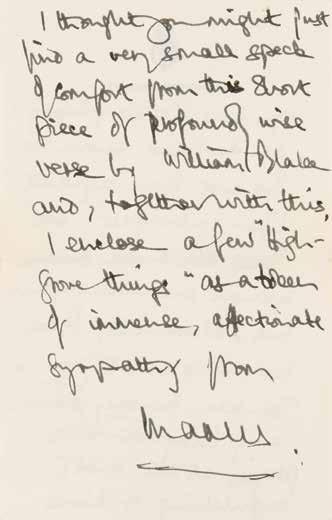 I thought you might just
find a very small speck
of comfort from this short
piece of profoundly wise
verse by William Blake
and, together with this,
I enclose a few "High-
grove things" as a token
of immense, affectionate
sympathy from